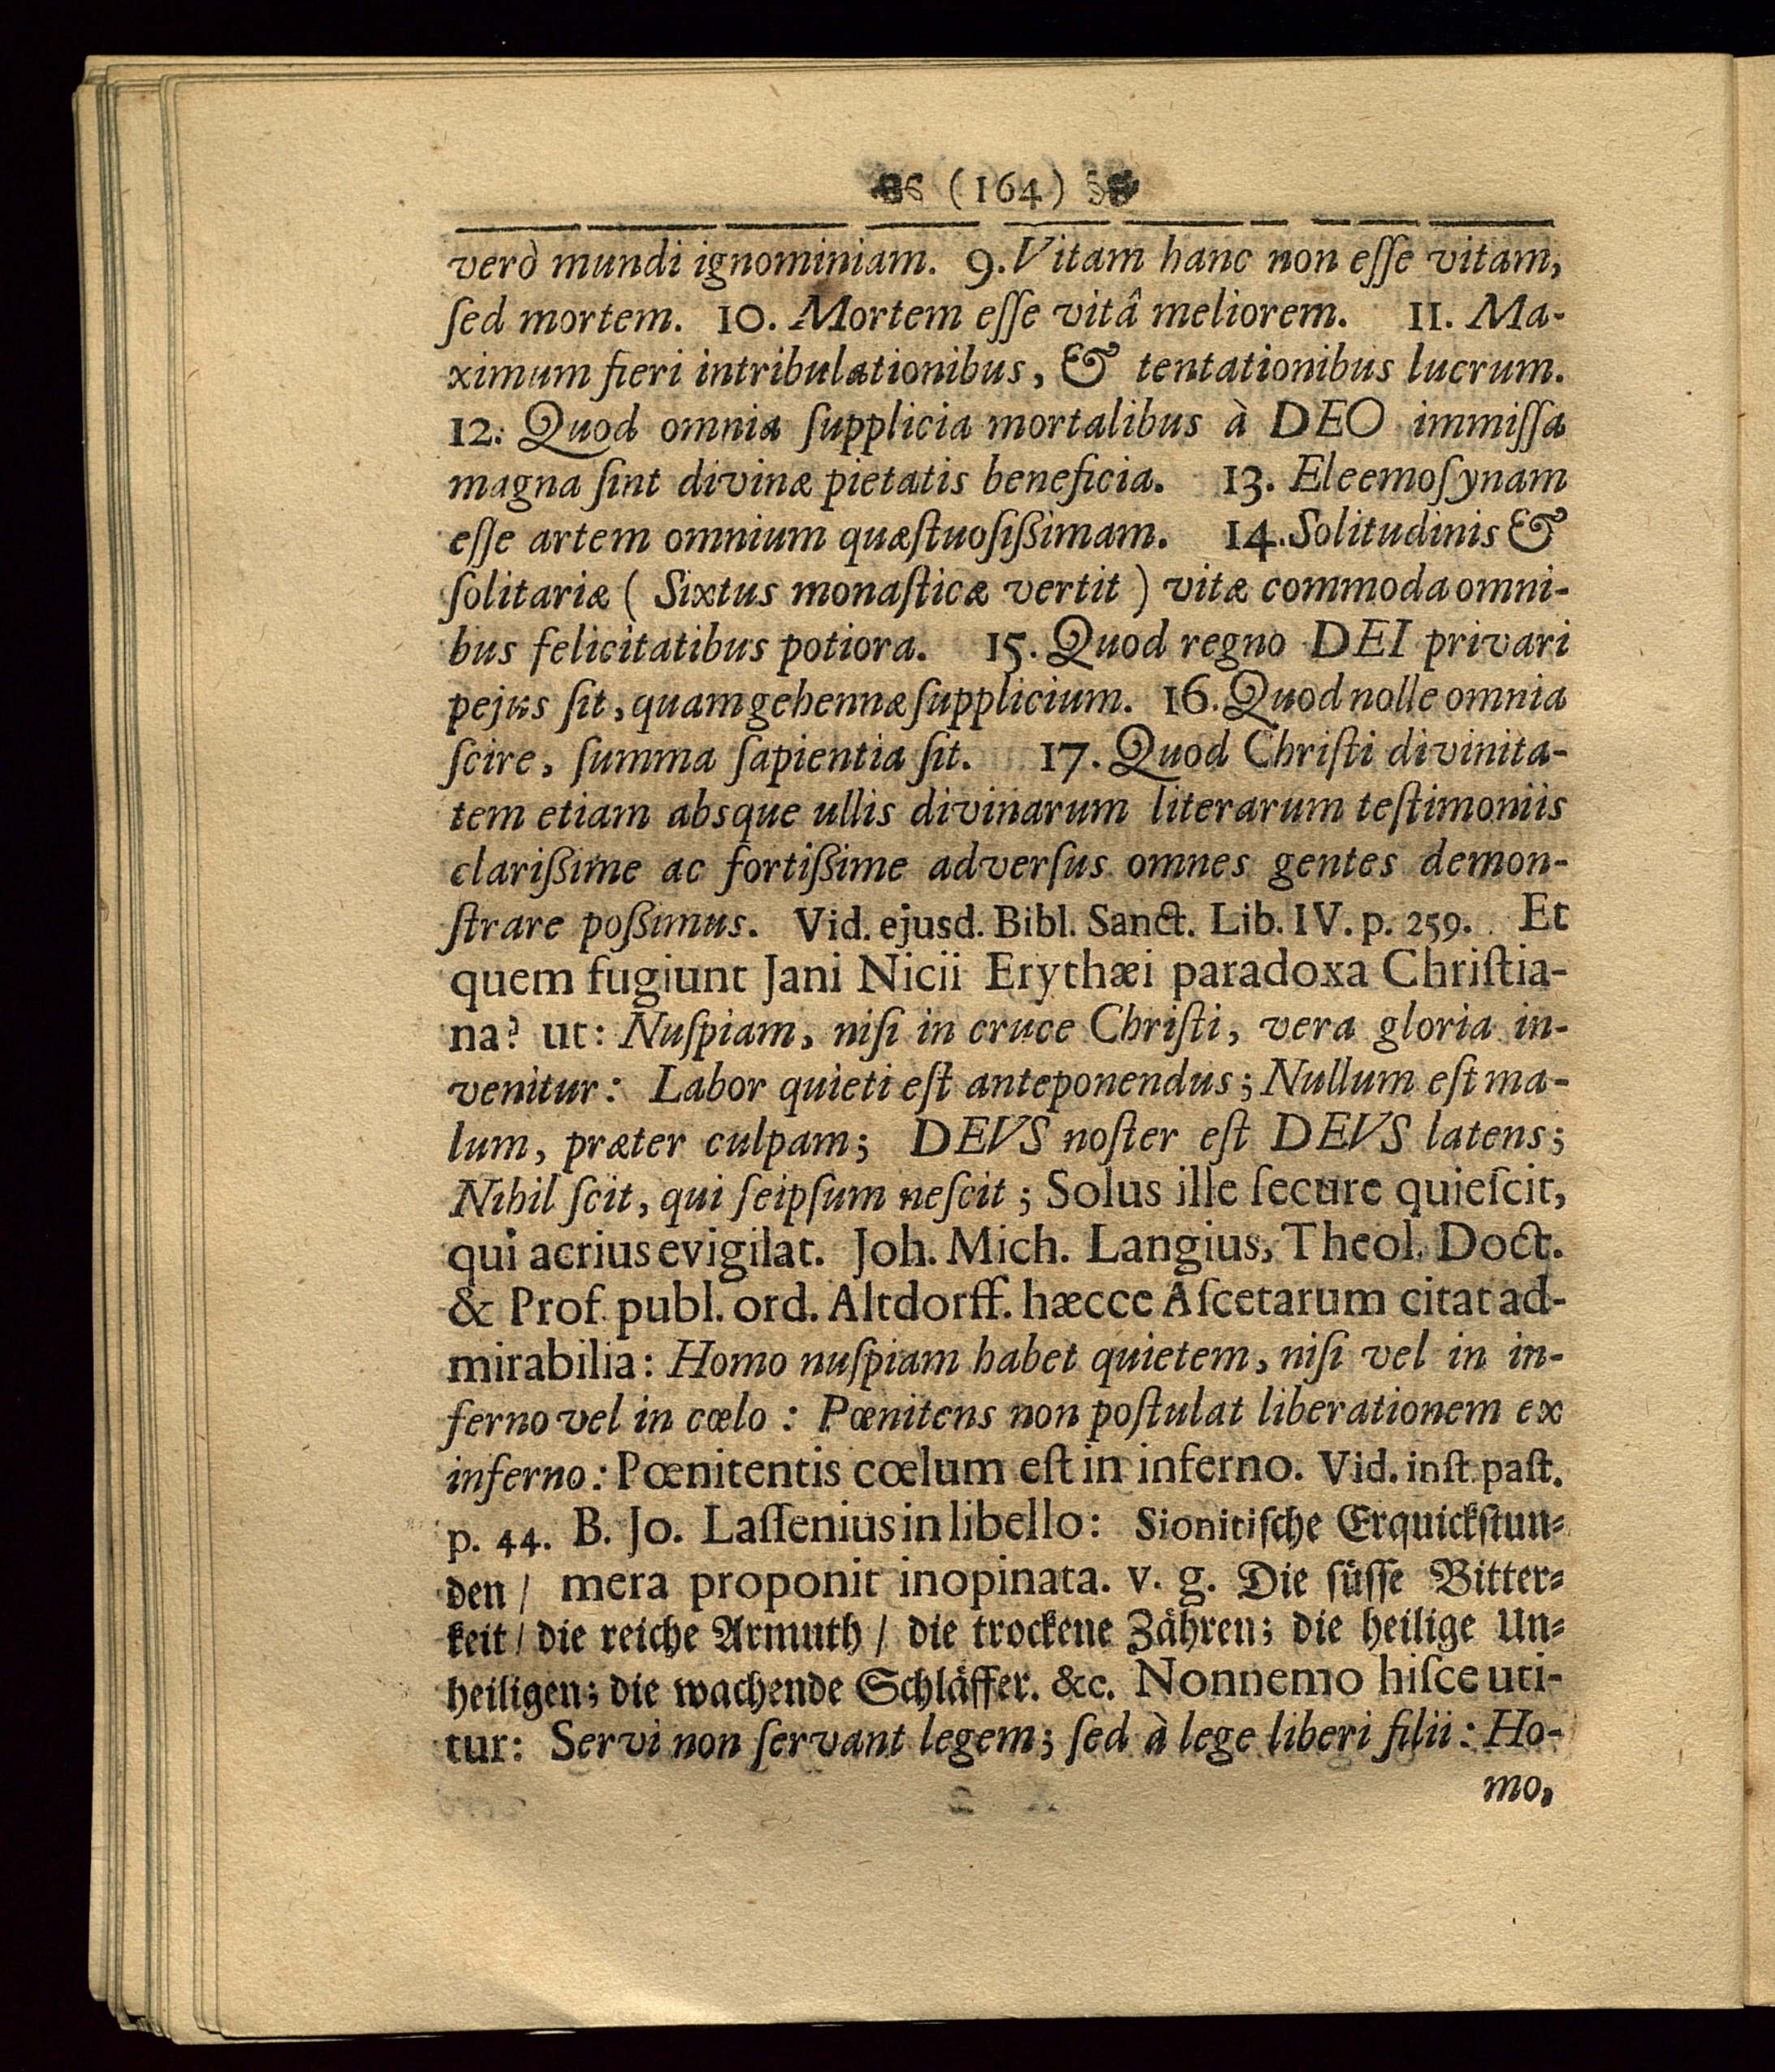 (164)
verò mundi ignominiam. 9. Vitam hanc non eſſe vitam,
ſed mortem. 10. Mortem eſſe vitâ meliorem. 11. Ma-
ximum fieri intribulationibus, & tentationibus lucrum.
12. Quod omnia ſupplicia mortalibus à DEO immiſſa
magna ſint divinæ pietatis beneficia. 13. Eleemoſynam
eſſe artem omnium quæſtuoſißimam. 14. Solitudinis &
ſolitariæ ( Sixtus monaſticæ vertit ) vitæ commoda omni-
bus felicitatibus potiora. 15. Quod regno DEI privari
pejus ſit, quam gehennæ ſupplicium. 16. Quod nolle omnia
ſcire, ſumma ſapientia ſit. 17. Quod Chriſti divinita-
tem etiam absque ullis divinarum literarum teſtimoniis
clarißime ac fortißime adverſus omnes gentes demon-
ſtrare poßimus. Vid. ejusd. Bibl. Sanct. Lib. IV. p. 259. Et
quem fugiunt Jani Nicii Erythæi paradoxa Chriſtia-
na? ut: Nuſpiam, niſi in cruce Chriſti, vera gloria in-
venitur: Labor quieti eſt anteponendus; Nullum eſt ma-
lum, præter culpam; DEVS noſter eſt DEVS latens;
Nihil ſcit, qui ſeipſum neſcit; Solus ille ſecure quieſcit,
qui acrius evigilat. Joh. Mich. Langius, Theol. Doct.
& Prof. publ. ord. Altdorff. hæcce Aſcetarum citat ad-
mirabilia: Homo nuſpiam habet quietem, niſi vel in in-
ferno vel in cœlo: Pœnitens non poſtulat liberationem ex
inferno: Pœnitentis cœlum eſt in inferno. Vid. inſt. paſt.
p. 44. B. Jo. Laſſenius in libello: Sionitiſche Erquickſtun⸗
den/ mera proponit inopinata. v. g. Die ſüſſe Bitter⸗
keit/ die reiche Armuth/ die trockene Zähren; die heilige Un⸗
heiligen; die wachende Schläffer. &c. Nonnemo hiſce uti-
tur: Servi non ſervant legem; ſed à lege liberi filii: Ho-
mo,